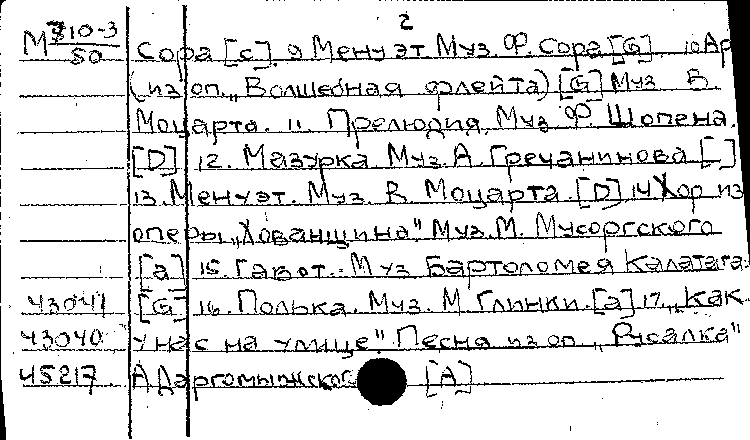 2
М 310-3
50
Сора [c]. 9 Менуэт. Муз. Ф. Сора [G]. 10 Ар
(из оп. „Волшебная флейта) [G] Муз В.
Моцарта. 11. Прелюдия. Муз Ф. Шопена.
[D] 12. Мазурка. Муз. А. Гречанинова [ ]
13. Менуэт. Муз. В. Моцарта. [D] 14 Хор из
оперы „Хованщина" Муз. М. Мусоргского
[a] 15. Гавот.. Муз Бартоломея Калатага.
43041 [G] 16. Полька. Муз. М. Глинки. [a] 17. „Как
43040 у нас на улице". Песня из оп „Русалка"
45217. А Даргомыжског [A]